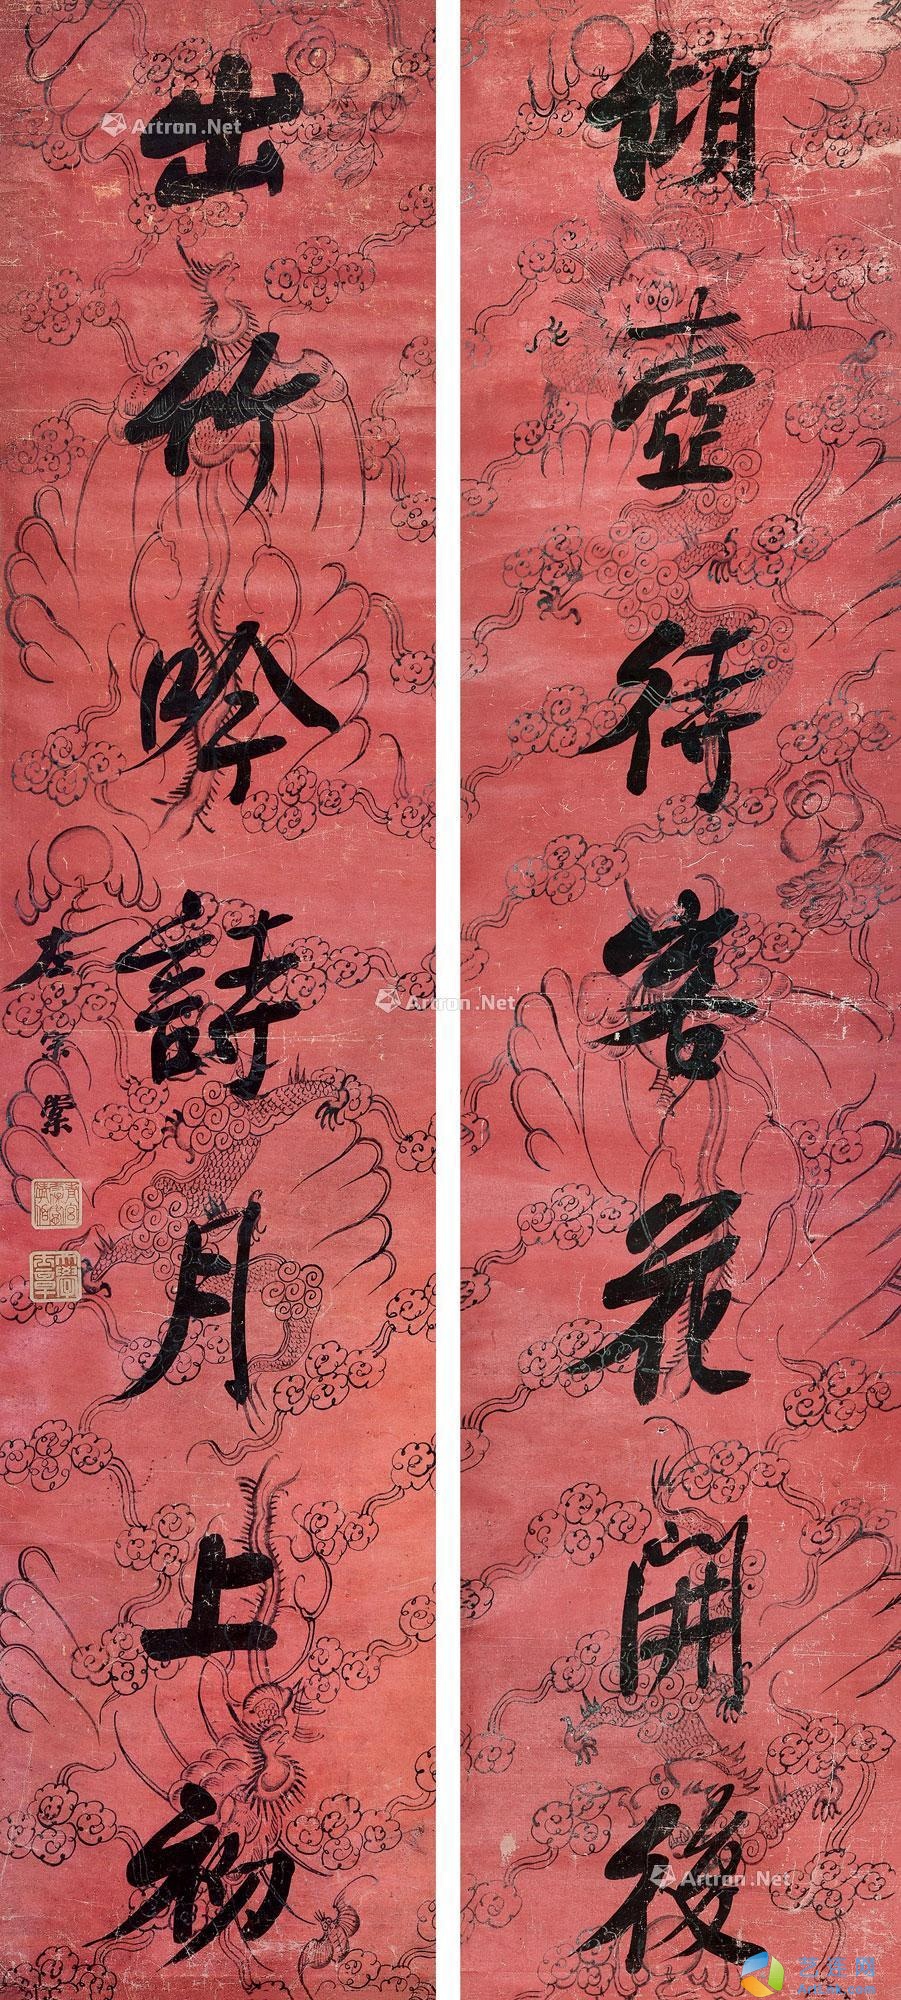 傾壺待客花開後
出竹吟詩月上初
左宗棠
Artron.Net
Artron.Net
Artron.Net